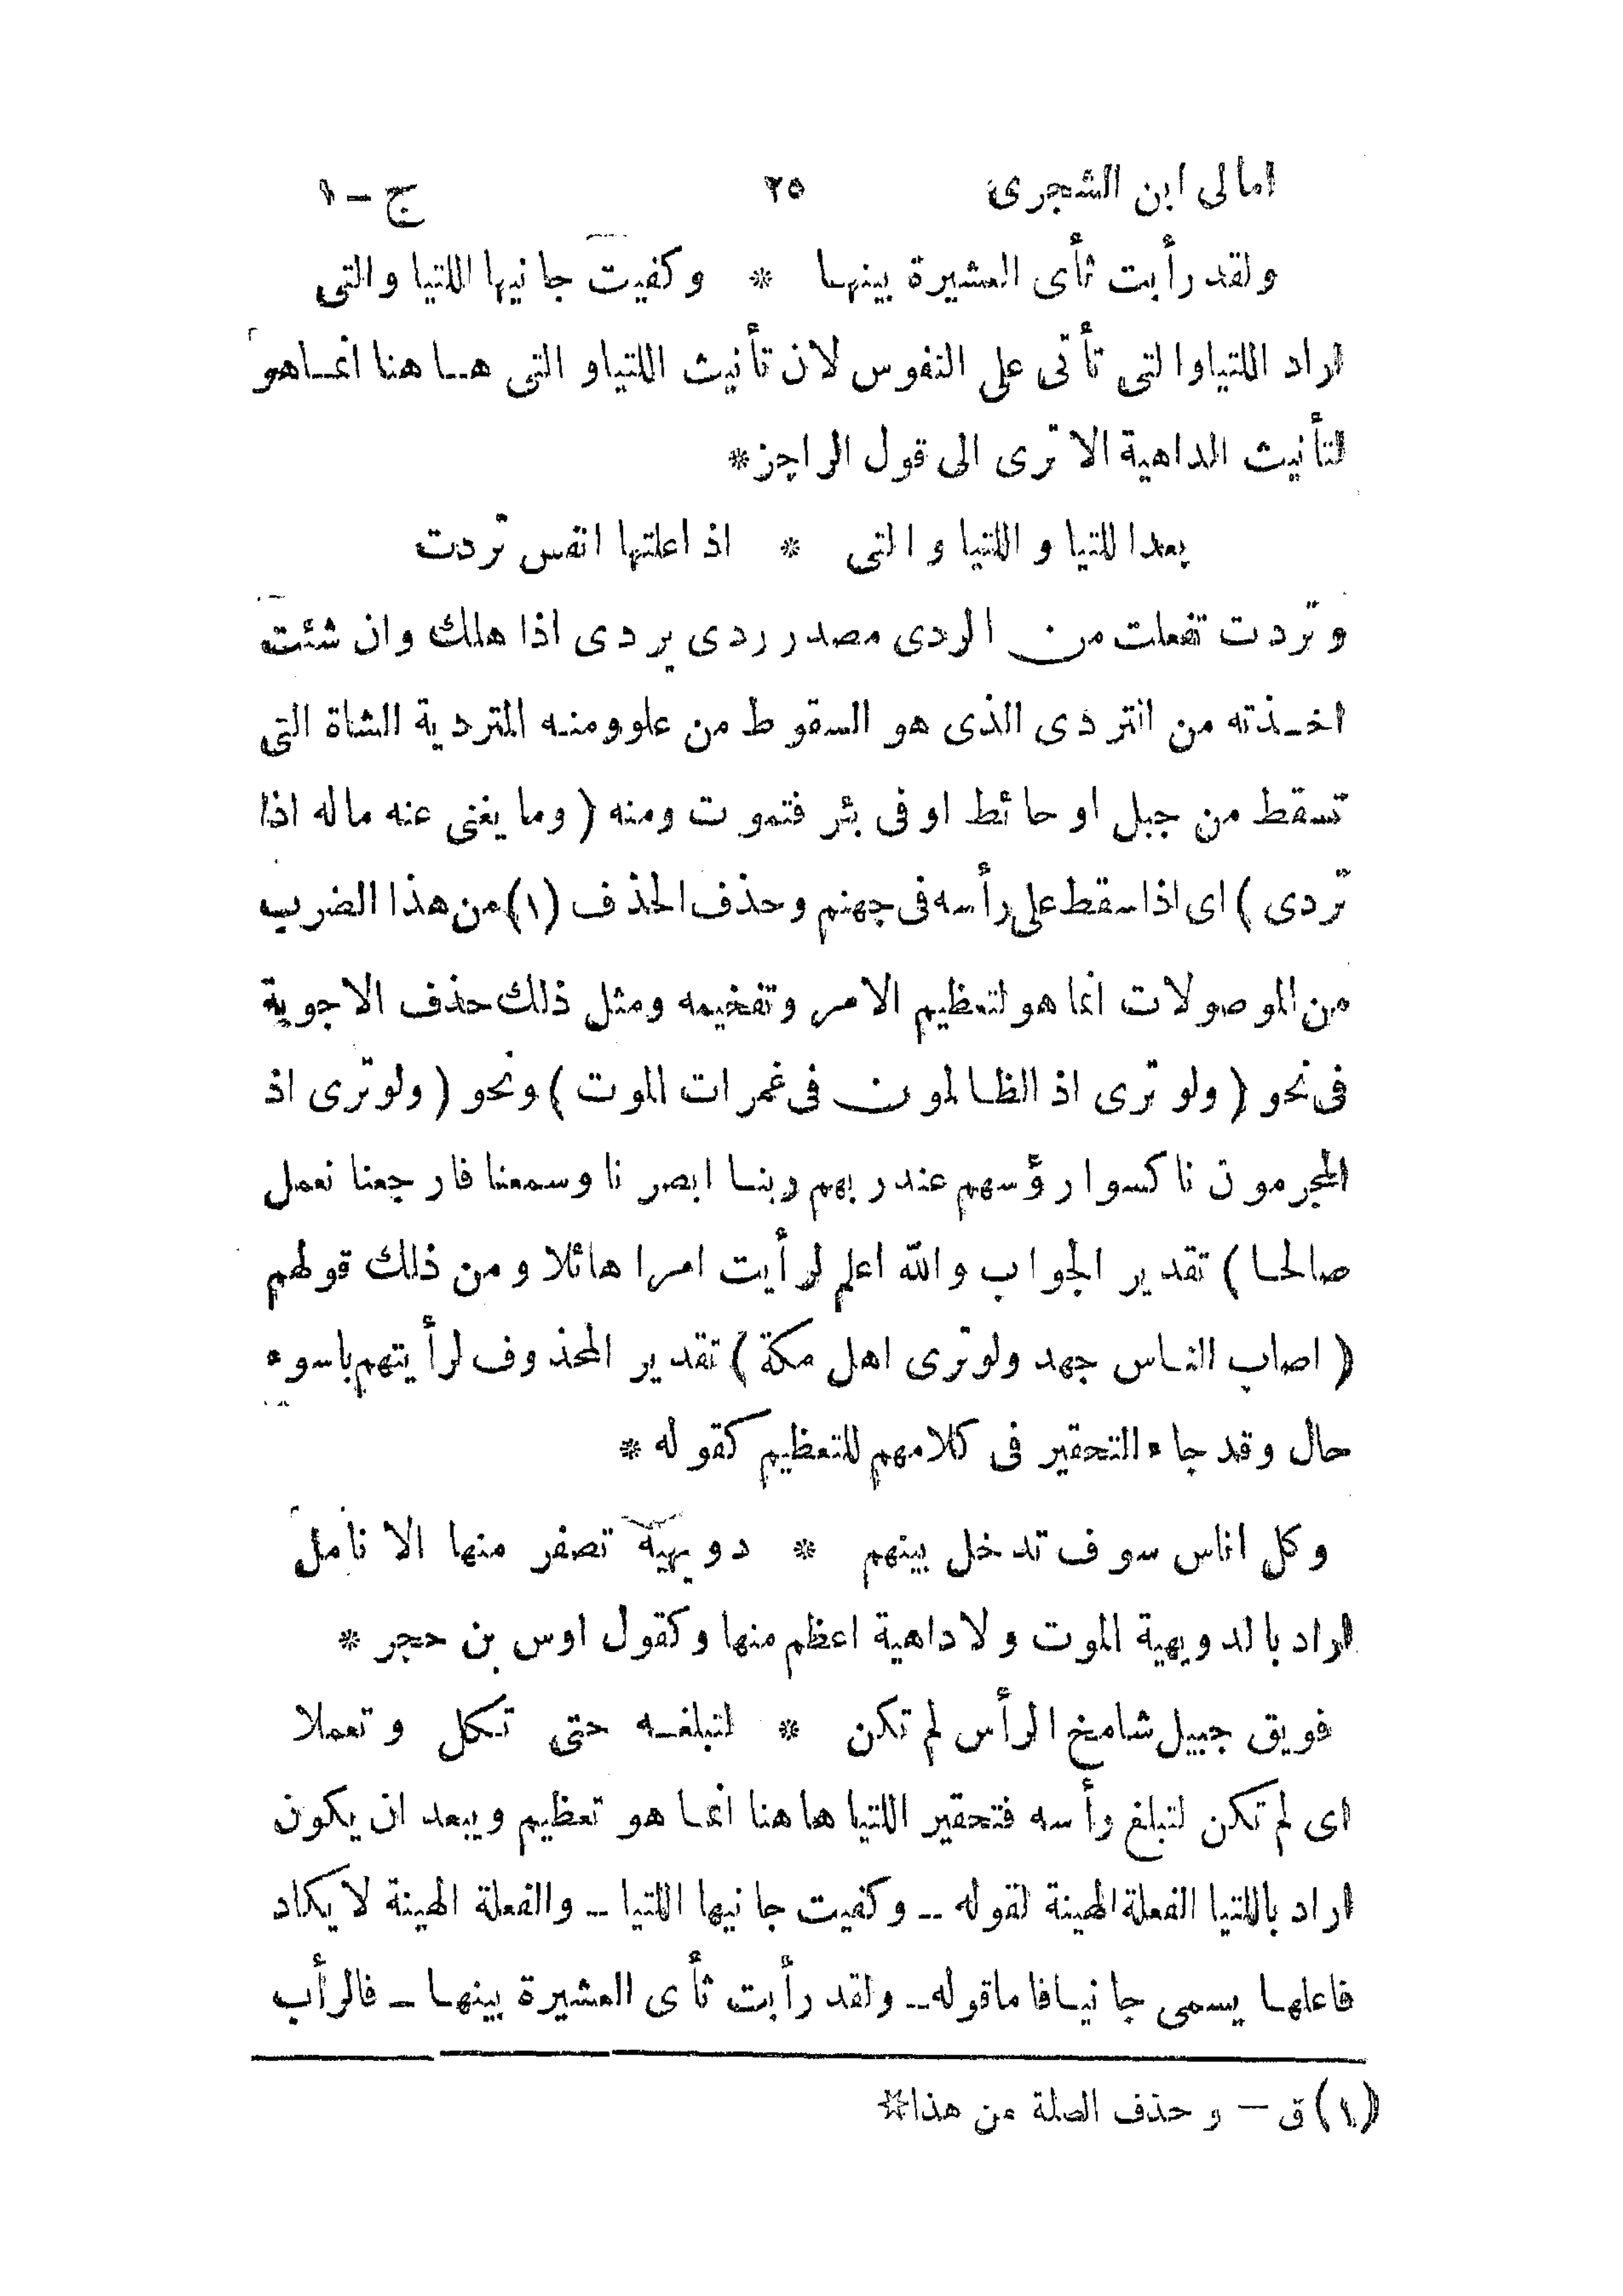 امالى ابن الشجرى ٢٥ ج – ١
ولقد رأبت ثأى العشيرة بينها * وكفيت جانيها اللتيا والتى
اراد اللتيا والتى تأتى على النفوس لان تأنيث اللتيا والتى هاهنا انما هو
لتأنيث الداهية الا ترى الى قول الراجز *
بعد اللتيا واللتيا والتى * اذا علتها انفس تردت
وتردت تفعلت من الردى مصدر ردى يردى اذا هلك وان شئت
اخذته من التردى الذى هو السقوط من علو ومنه المتردية الشاة التى
تسقط من جبل او حائط او فى بئر فتموت ومنه ( وما يغنى عنه ماله اذا
تردى ) اى اذا سقط على رأسه فى جهنم وحذف الحذف (١) من هذا الضرب
من الموصولات انما هو لتعظيم الامر وتفخيمه ومثل ذلك حذف الاجوبة
فى نحو ( ولو ترى اذ الظالمون فى غمرات الموت ) ونحو ( ولو ترى اذ
المجرمون ناكسوا رؤسهم عند ربهم ربنا ابصرنا وسمعنا فارجعنا نعمل
صالحا ) تقدير الجواب والله اعلم لرأيت امرا هائلا ومن ذلك قولهم
( اصاب الناس جهد ولو ترى اهل مكة ) تقدير المحذوف لرأيتهم باسوء
حال وقد جاء التحقير فى كلامهم للتعظيم كقوله *
وكل اناس سوف تدخل بينهم * دويهية تصفر منها الانامل
اراد بالدويهية الموت ولا داهية اعظم منها وكقول اوس بن حجر *
فويق جبيل شامخ الرأس لم تكن * لتبلغه حتى تكل وتعملا
اى لم تكن لتبلغ رأسه فتحقير اللتيا هاهنا انما هو تعظيم ويبعد ان يكون
اراد باللتيا الفعلة الهينة لقوله – وكفيت جانيها اللتيا – والفعلة الهينة لا يكاد
فاعلها يسمى جانيا فاما قوله – ولقد رأبت ثأى العشيرة بينها – فالرأب
(١) ق – وحذف الصلة من هذا *